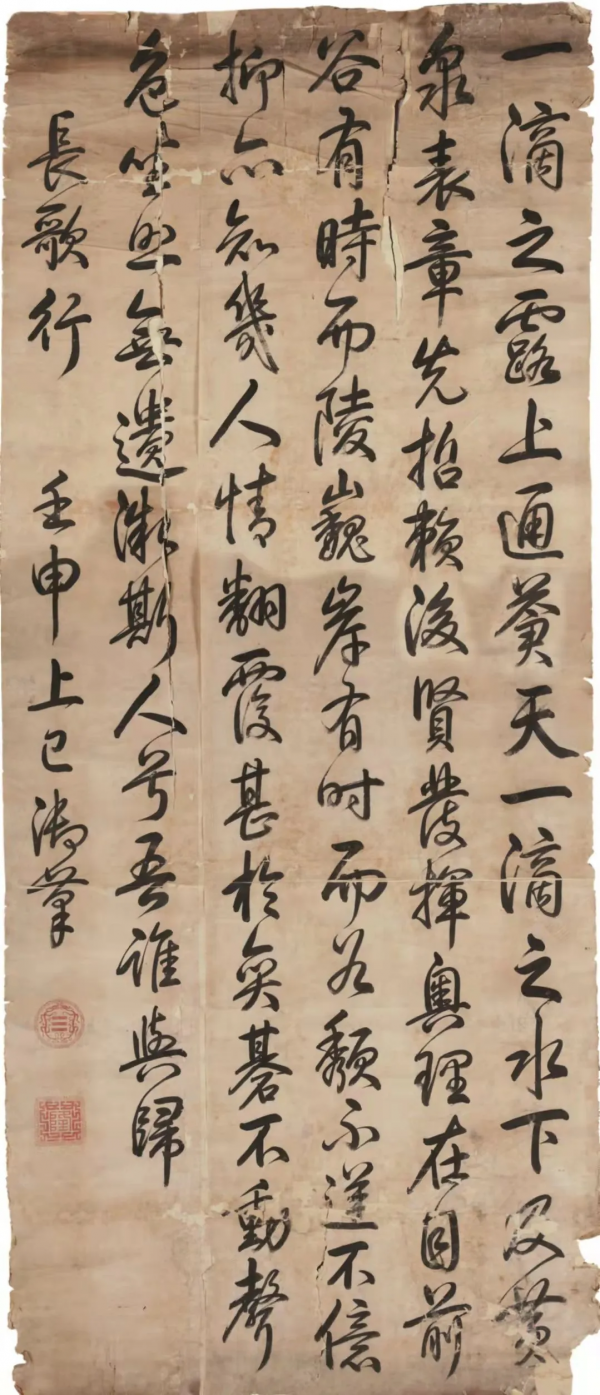 一滴之露上通蒼天一滴之水下及黃
泉表章先哲賴後賢發揮奧理在目前
谷有時而陵巍岸有时而谷頹不逆不億
抑亦知幾人情翻覆甚於奕碁不動聲
色坐照無遺微斯人兮吾誰與歸
長歌行 壬申上巳御筆